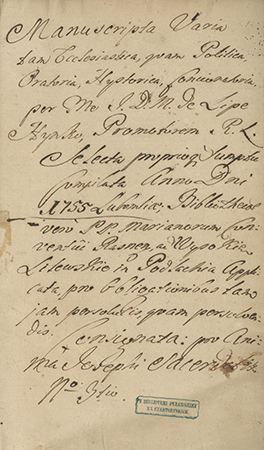 Manuscripta Varia
tam Ecclesiastica, quam Politica
Oratoria, Hystorica, Concionatoria,
per Me J. D. M. de Lipe
Promotorem R. L.
Selecta proprioq Sumptu
Compilata Anno Dni
1755 Bibliothecae
vero P.P. Marianorum Con-
ventus Rasnen, a Wysokie
Litewskie in Podlachia Appli-
cata, pro obligationibus tam
jam persolutis, quam persolven-
dis.
Consignata: pro Ani-
ma Josephi
No. 3tio
Z BIBLIOTEKI PUŁAWSKIEJ
XX. CZARTORYSKICH